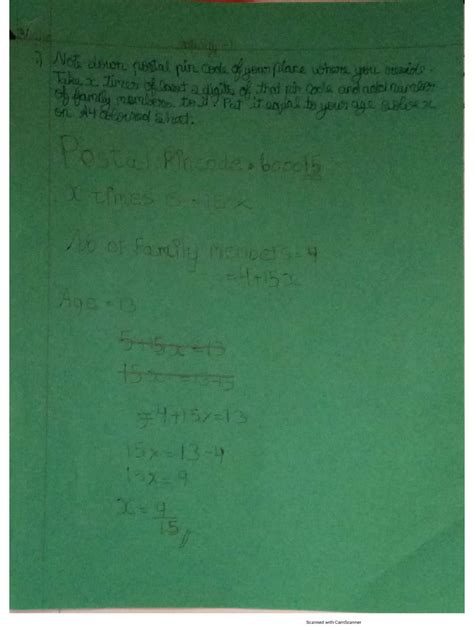 1) Note down postal pin code of your place where you reside.
Take x times of last 2 digits of that pin code and add number
of family members to it. Put it equal to your age solve x
on A4 coloured sheet.
Postal Pincode = 600015
x times = 15x
No of family members = 4
= 4+15x
Age = 13
5+15x=13
⇒ 4+15x=13
15x=13-4
15x=9
x=9
15//
Scanned with CamScanner